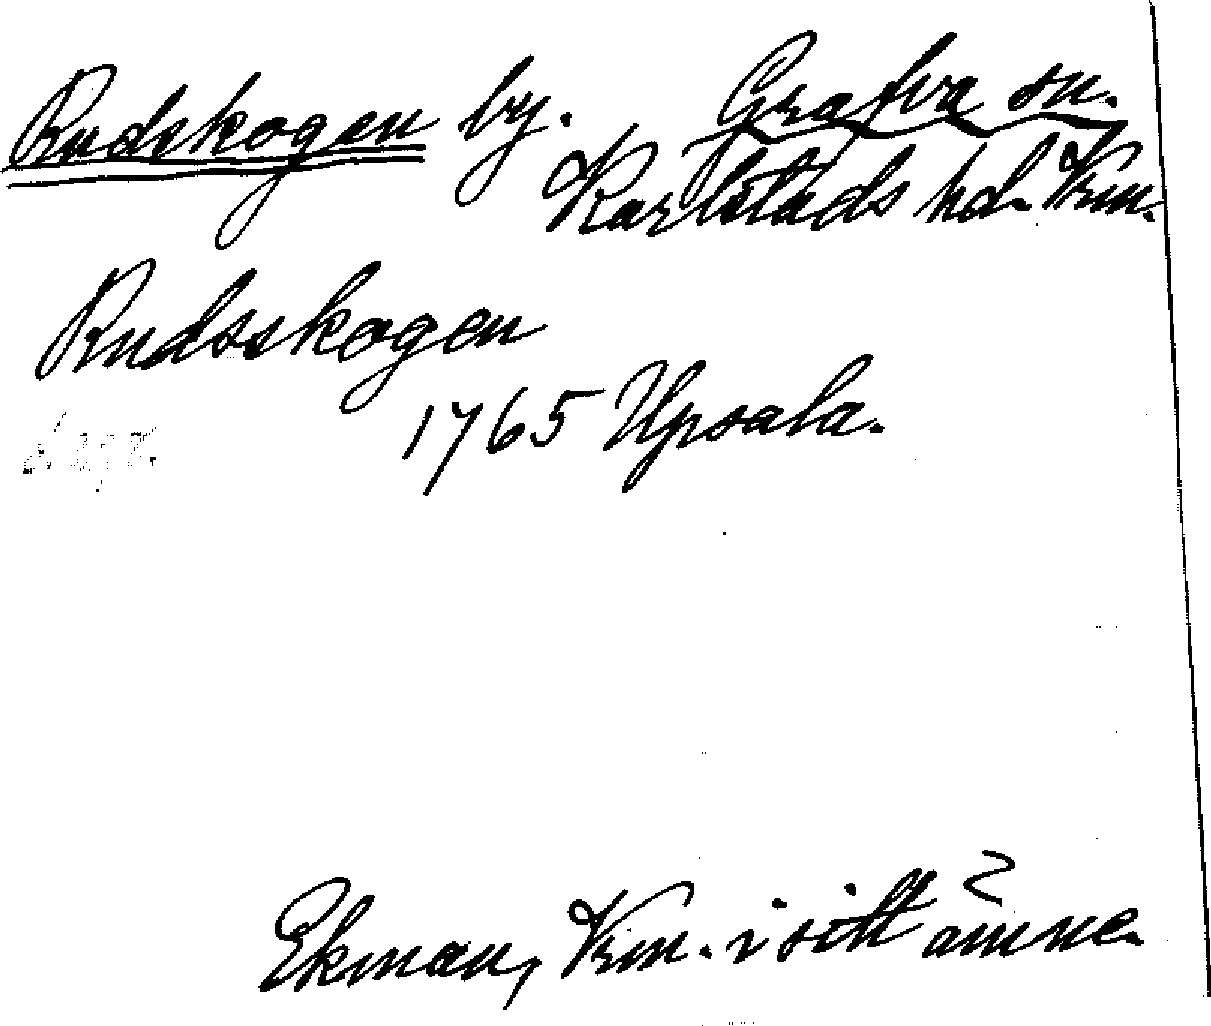 Rudskogen by. Grafva sn.
Karlstads hd. Vrm.
Rudsskogen
1765 Upsala.
Ekman, Vrm. i sitt ämne.